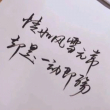 情如风雪无常
却是一动即殇